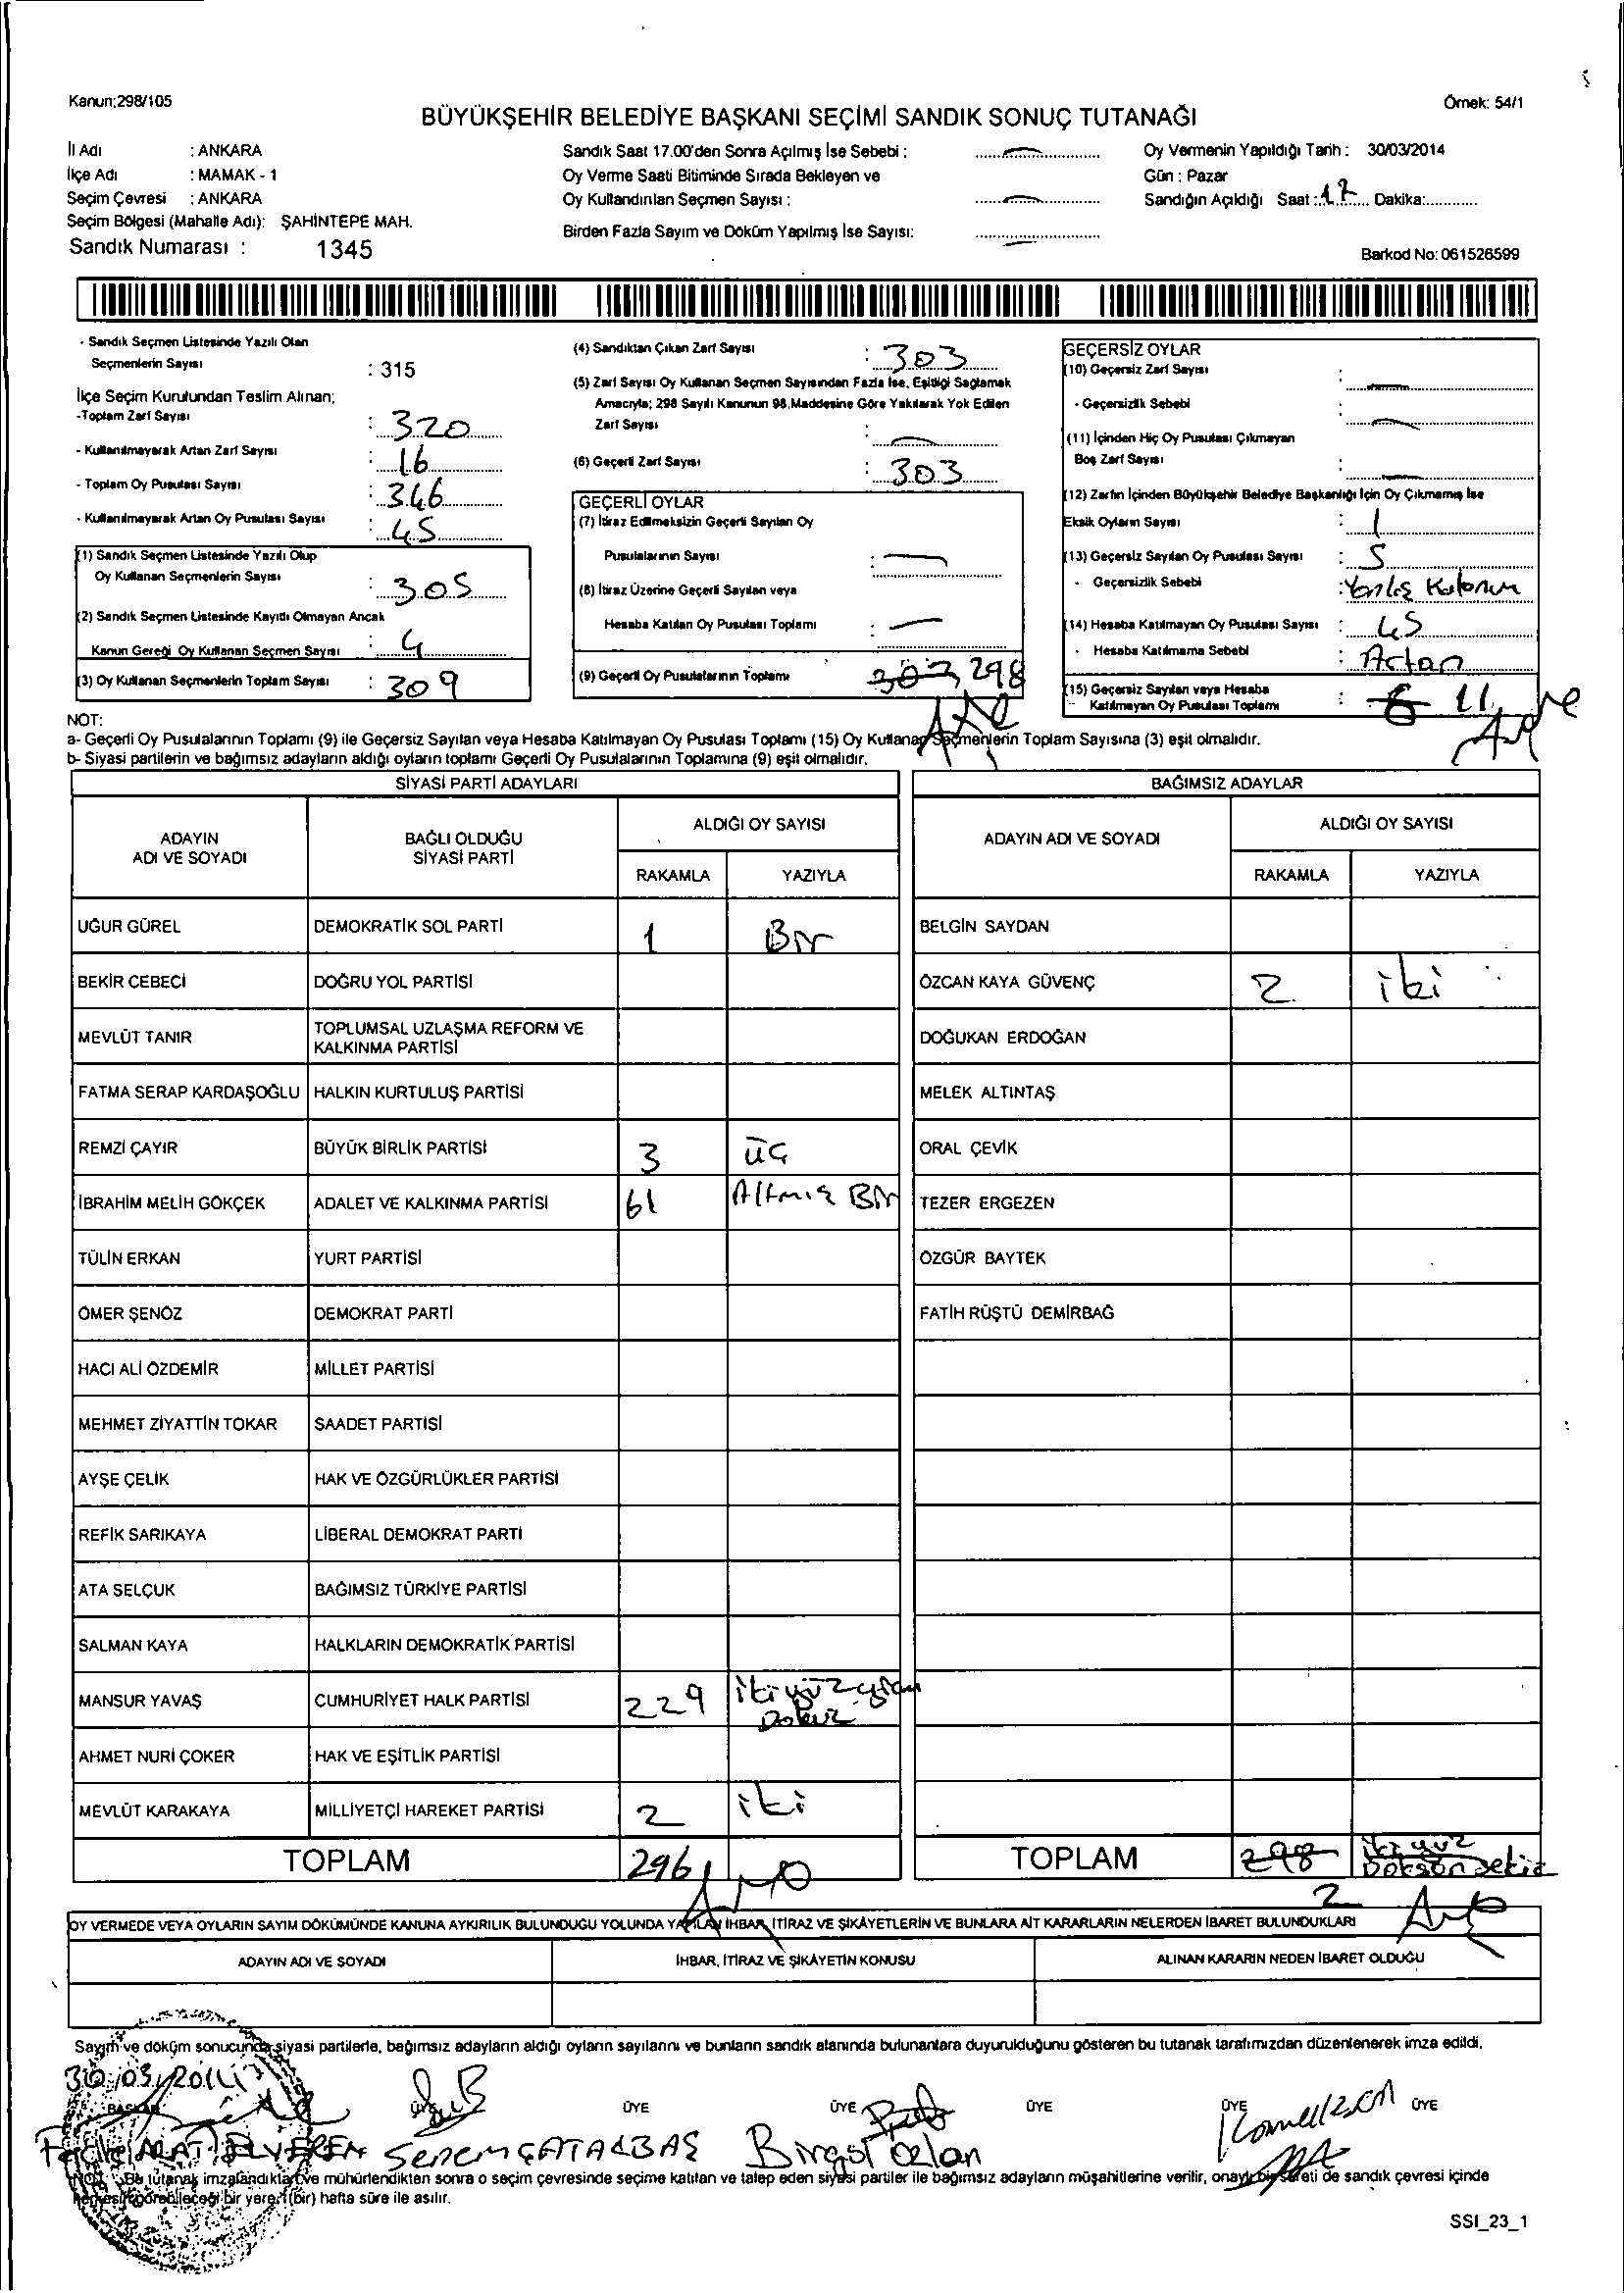 Kanun;298/105
Örnek: 54/1
BÜYÜKŞEHİR BELEDİYE BAŞKANI SEÇİMİ SANDIK SONUÇ TUTANAĞI
İl Adı : ANKARA
İlçe Adı : MAMAK - 1
Seçim Çevresi : ANKARA
Seçim Bölgesi (Mahalle Adı): ŞAHİNTEPE MAH.
Sandık Numarası : 1345
Sandık Saat 17.00'den Sonra Açılmış İse Sebebi :
Oy Verme Saati Bitiminde Sırada Bekleyen ve
Oy Kullandırılan Seçmen Sayısı :
Birden Fazla Sayım ve Döküm Yapılmış İse Sayısı:
Oy Vermenin Yapıldığı Tarih : 30/03/2014
Gün : Pazar
Sandığın Açıldığı Saat : 17 Dakika:
Barkod No: 061526599
- Sandık Seçmen Listesinde Yazılı Olan
Seçmenlerin Sayısı : 315
İlçe Seçim Kurulundan Teslim Alınan;
-Toplam Zarf Sayısı : 320
- Kullanılmayarak Artan Zarf Sayısı : 16
- Toplam Oy Pusulası Sayısı : 346
- Kullanılmayarak Artan Oy Pusulası Sayısı : 45
(1) Sandık Seçmen Listesinde Yazılı Olup
Oy Kullanan Seçmenlerin Sayısı : 305
(2) Sandık Seçmen Listesinde Kayıtlı Olmayan Ancak
Kanun Gereği Oy Kullanan Seçmen Sayısı : 4
(3) Oy Kullanan Seçmenlerin Toplam Sayısı : 309
(4) Sandıktan Çıkan Zarf Sayısı : 303
(5) Zarf Sayısı Oy Kullanan Seçmen Sayısından Fazla İse, Eşitliği Sağlamak
Amacıyla; 298 Sayılı Kanunun 98.Maddesine Göre Yakılarak Yok Edilen
Zarf Sayısı :
(6) Geçerli Zarf Sayısı : 303
GEÇERLİ OYLAR
(7) İtiraz Edilmeksizin Geçerli Sayılan Oy
Pusulalarının Sayısı :
(8) İtiraz Üzerine Geçerli Sayılan veya
Hesaba Katılan Oy Pusulası Toplamı :
(9) Geçerli Oy Pusulalarının Toplamı 303 298
GEÇERSİZ OYLAR
(10) Geçersiz Zarf Sayısı :
- Geçersizlik Sebebi :
(11) İçinden Hiç Oy Pusulası Çıkmayan
Boş Zarf Sayısı :
(12) Zarfın İçinden Büyükşehir Belediye Başkanlığı İçin Oy Çıkmamış İse
Eksik Oyların Sayısı : 1
(13) Geçersiz Sayılan Oy Pusulası Sayısı : 5
- Geçersizlik Sebebi : Yanlış
(14) Hesaba Katılmayan Oy Pusulası Sayısı : 45
- Hesaba Katılmama Sebebi : Artan
(15) Geçersiz Sayılan veya Hesaba
Katılmayan Oy Pusulası Toplamı : 6 11
NOT:
a- Geçerli Oy Pusulalarının Toplamı (9) ile Geçersiz Sayılan veya Hesaba Katılmayan Oy Pusulası Toplamı (15) Oy Kullanan Seçmenlerin Toplam Sayısına (3) eşit olmalıdır.
b- Siyasi partilerin ve bağımsız adayların aldığı oyların toplamı Geçerli Oy Pusulalarının Toplamına (9) eşit olmalıdır.
SİYASİ PARTİ ADAYLARI
ADAYIN ADI VE SOYADI BAĞLI OLDUĞU SİYASİ PARTİ ALDIĞI OY SAYISI
RAKAMLA YAZIYLA
UĞUR GÜREL DEMOKRATİK SOL PARTİ 1 Bir
BEKİR CEBECİ DOĞRU YOL PARTİSİ
MEVLÜT TANIR TOPLUMSAL UZLAŞMA REFORM VE
KALKINMA PARTİSİ
FATMA SERAP KARDAŞOĞLU HALKIN KURTULUŞ PARTİSİ
REMZİ ÇAYIR BÜYÜK BİRLİK PARTİSİ 3 üç
İBRAHİM MELİH GÖKÇEK ADALET VE KALKINMA PARTİSİ 61 Altmış Bir
TÜLİN ERKAN YURT PARTİSİ
ÖMER ŞENÖZ DEMOKRAT PARTİ
HACI ALİ ÖZDEMİR MİLLET PARTİSİ
MEHMET ZİYATTİN TOKAR SAADET PARTİSİ
AYŞE ÇELİK HAK VE ÖZGÜRLÜKLER PARTİSİ
REFİK SARIKAYA LİBERAL DEMOKRAT PARTİ
ATA SELÇUK BAĞIMSIZ TÜRKİYE PARTİSİ
SALMAN KAYA HALKLARIN DEMOKRATİK PARTİSİ
MANSUR YAVAŞ CUMHURİYET HALK PARTİSİ 229 ikiyüzyirmi
Dokuz
AHMET NURİ ÇOKER HAK VE EŞİTLİK PARTİSİ
MEVLÜT KARAKAYA MİLLİYETÇİ HAREKET PARTİSİ 2 iki
TOPLAM 296
BAĞIMSIZ ADAYLAR
ADAYIN ADI VE SOYADI ALDIĞI OY SAYISI
RAKAMLA YAZIYLA
BELGİN SAYDAN
ÖZCAN KAYA GÜVENÇ 2 iki
DOĞUKAN ERDOĞAN
MELEK ALTINTAŞ
ORAL ÇEVİK
TEZER ERGEZEN
ÖZGÜR BAYTEK
FATİH RÜŞTÜ DEMİRBAĞ
TOPLAM 298 iki yüz
Doksan sekiz
2
OY VERMEDE VEYA OYLARIN SAYIM DÖKÜMÜNDE KANUNA AYKIRILIK BULUNDUĞU YOLUNDA YAPILAN İHBAR, İTİRAZ VE ŞİKÂYETLERİN VE BUNLARA AİT KARARLARIN NELERDEN İBARET BULUNDUKLARI
ADAYIN ADI VE SOYADI İHBAR, İTİRAZ VE ŞİKÂYETİN KONUSU ALINAN KARARIN NEDEN İBARET OLDUĞU
Sayım ve döküm sonucunda siyasi partilerle, bağımsız adayların aldığı oyların sayılarını ve bunların sandık alanında bulunanlara duyurulduğunu gösteren bu tutanak tarafımızdan düzenlenerek imza edildi.
30/03/2014
BAŞKAN ÜYE ÜYE ÜYE ÜYE ÜYE ÜYE
Senem ÇATALBAŞ Birgül
NOT: Bu tutanak imzalandıktan ve mühürlendikten sonra o seçim çevresinde seçime katılan ve talep eden siyasi partiler ile bağımsız adayların müşahitlerine verilir, onaylı bir sureti de sandık çevresi içinde
herkesin görebileceği bir yere 1 (bir) hafta süre ile asılır.
SSI_23_1